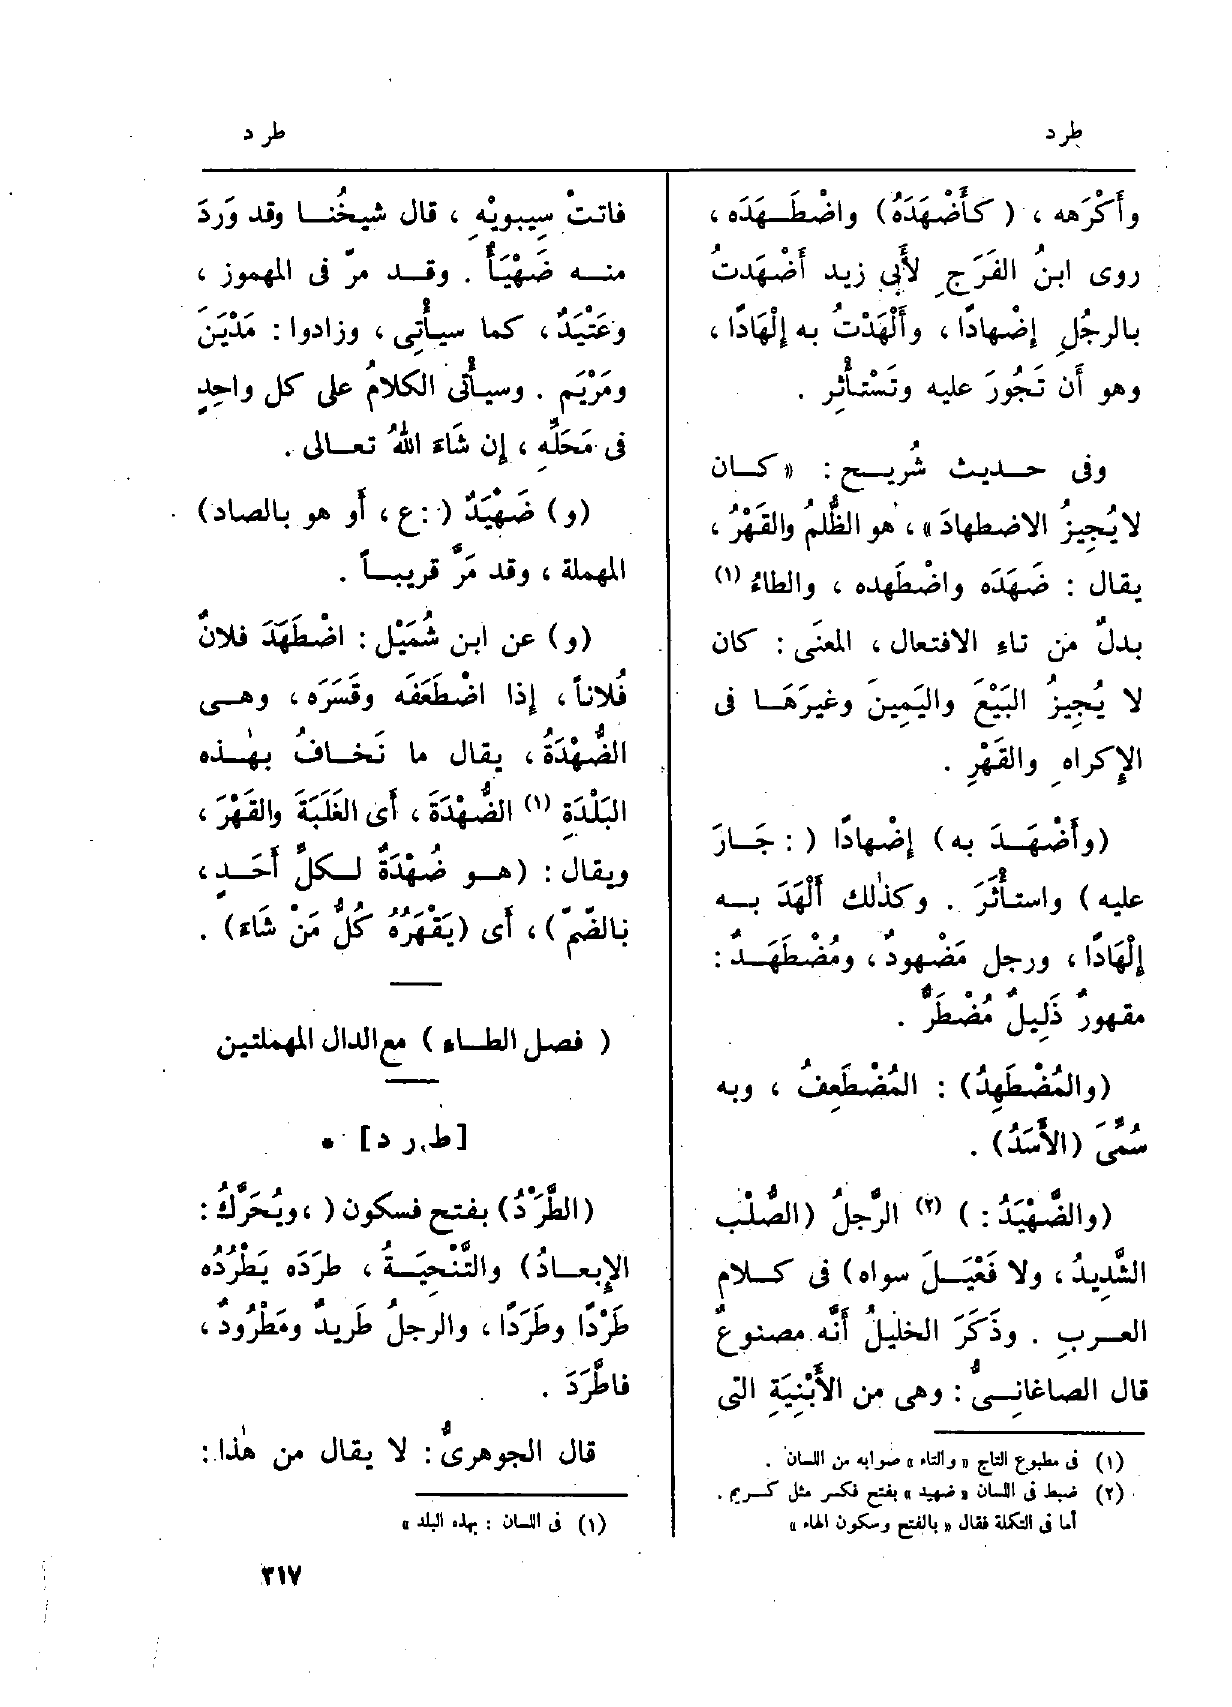 طرد
طرد
وأَكْرَهه ، ( كأَضْهَدَهُ ) واضْطَـهَدَه ،
روى ابنُ الفَرَجِ لأَبِى زيد أَضْهَدتُ
بالرجُلِ إِضْهادًا ، وأَلْهَدْتُ به إِلْهَادًا ،
وهو أَن تَجُورَ عليه وتَسْتأْثِر .
وفى حـديث شُرَيـح : « كـان
لا يُجِيزُ الاضطهادَ » ، هو الظُّلمُ والقَهْرُ ،
يقال : ضَهَدَه واضْطَهده ، والطاءُ (١)
بدلٌ من تاءِ الافتعال ، المعنَى : كان
لا يُجِيزُ البَيْعَ واليَمِينَ وغيرَهَـا فى
الإِكراهِ والقَهْرِ .
(وأَضْهَـدَ به) إِضْهادًا ( : جَـارَ
عليه ) واستأْثَرَ . وكذٰلك أَلْهَدَ بـه
إِلْهَادًا ، ورجل مَضْهودٌ ، ومُضْطَهَـدٌ :
مقهورٌ ذَلِيلٌ مُضْطَرٌّ .
(والمُضْطَهِدُ) : المُضْطَعِفُ ، وبه
سُمِّىَ (الأَسَدُ) .
(والضَّهْيَدُ : ) (٢) الرَّجلُ (الصُّلْب
الشَّدِيدُ ، ولا فَعْيَـلَ سواه ) فى كـلام
العـربِ . وذَكَرَ الخليلُ أَنَّه مصنوعٌ
قال الصاغانـىُّ : وهى من الأَبْنِيَةِ التى
(١) فى مطبوع التاج « والتاء » صوابه من اللسان .
(٢) ضبط فى اللسان « ضهيد » بفتح فكسر مثل كريم .
أما فى التكملة فقال « بالفتح وسكون الهاء »
فاتتْ سِيبويْهِ ، قال شيخُنـا وقد وَرَدَ
منـه ضَهْيَأٌ . وقـد مرّ فى المهموز ،
وعَتْيَدٌ ، كما سيأْتِى ، وزادوا : مَدْيَنَ
ومَرْيَم . وسيأْتى الكلامُ على كل واحِدٍ
فى مَحَلِّهِ ، إِن شَاءَ اللهُ تعـالى .
(و) ضَهْيَدٌ ( : ع ، أَو هو بالصاد)
المهملة ، وقد مَرَّ قريبـاً .
(و) عن ابن شُمَيْل : اضْطَهَدَ فلانٌ
فُلاناً ، إِذا اضْطَعَفَه وقَسَرَه ، وهـى
الضُّهْدَةُ ، يقال ما نَخـافُ بهٰـذه
البَلْدَةِ (١) الضُّهْدَةَ ، أَى الغَلَبَةَ والقَهْرَ ،
ويقال : ( هـو ضُهْدَةٌ لـكلِّ أَحَـدٍ ،
بالضّمّ ) ، أَى (يَقْهَرُهُ كُلُّ مَنْ شَاءَ) .
( فصل الطـاء ) مع الدال المهملتين
[ ط ر د ] *
(الطَّرْدُ) بفتح فسكون ( ، ويُحَرَّكُ :
الإِبعـادُ) والتَّنْحِيَـةُ ، طرَدَه يَطْرُدُه
طَرْدًا وطَرَدًا ، والرجلُ طَرِيدٌ ومَطْرُودٌ ،
فاطَّرَدَ .
قال الجوهرىُّ : لا يقال من هٰذا :
(١) فى اللسان : بهذه البلد »
٣١٧